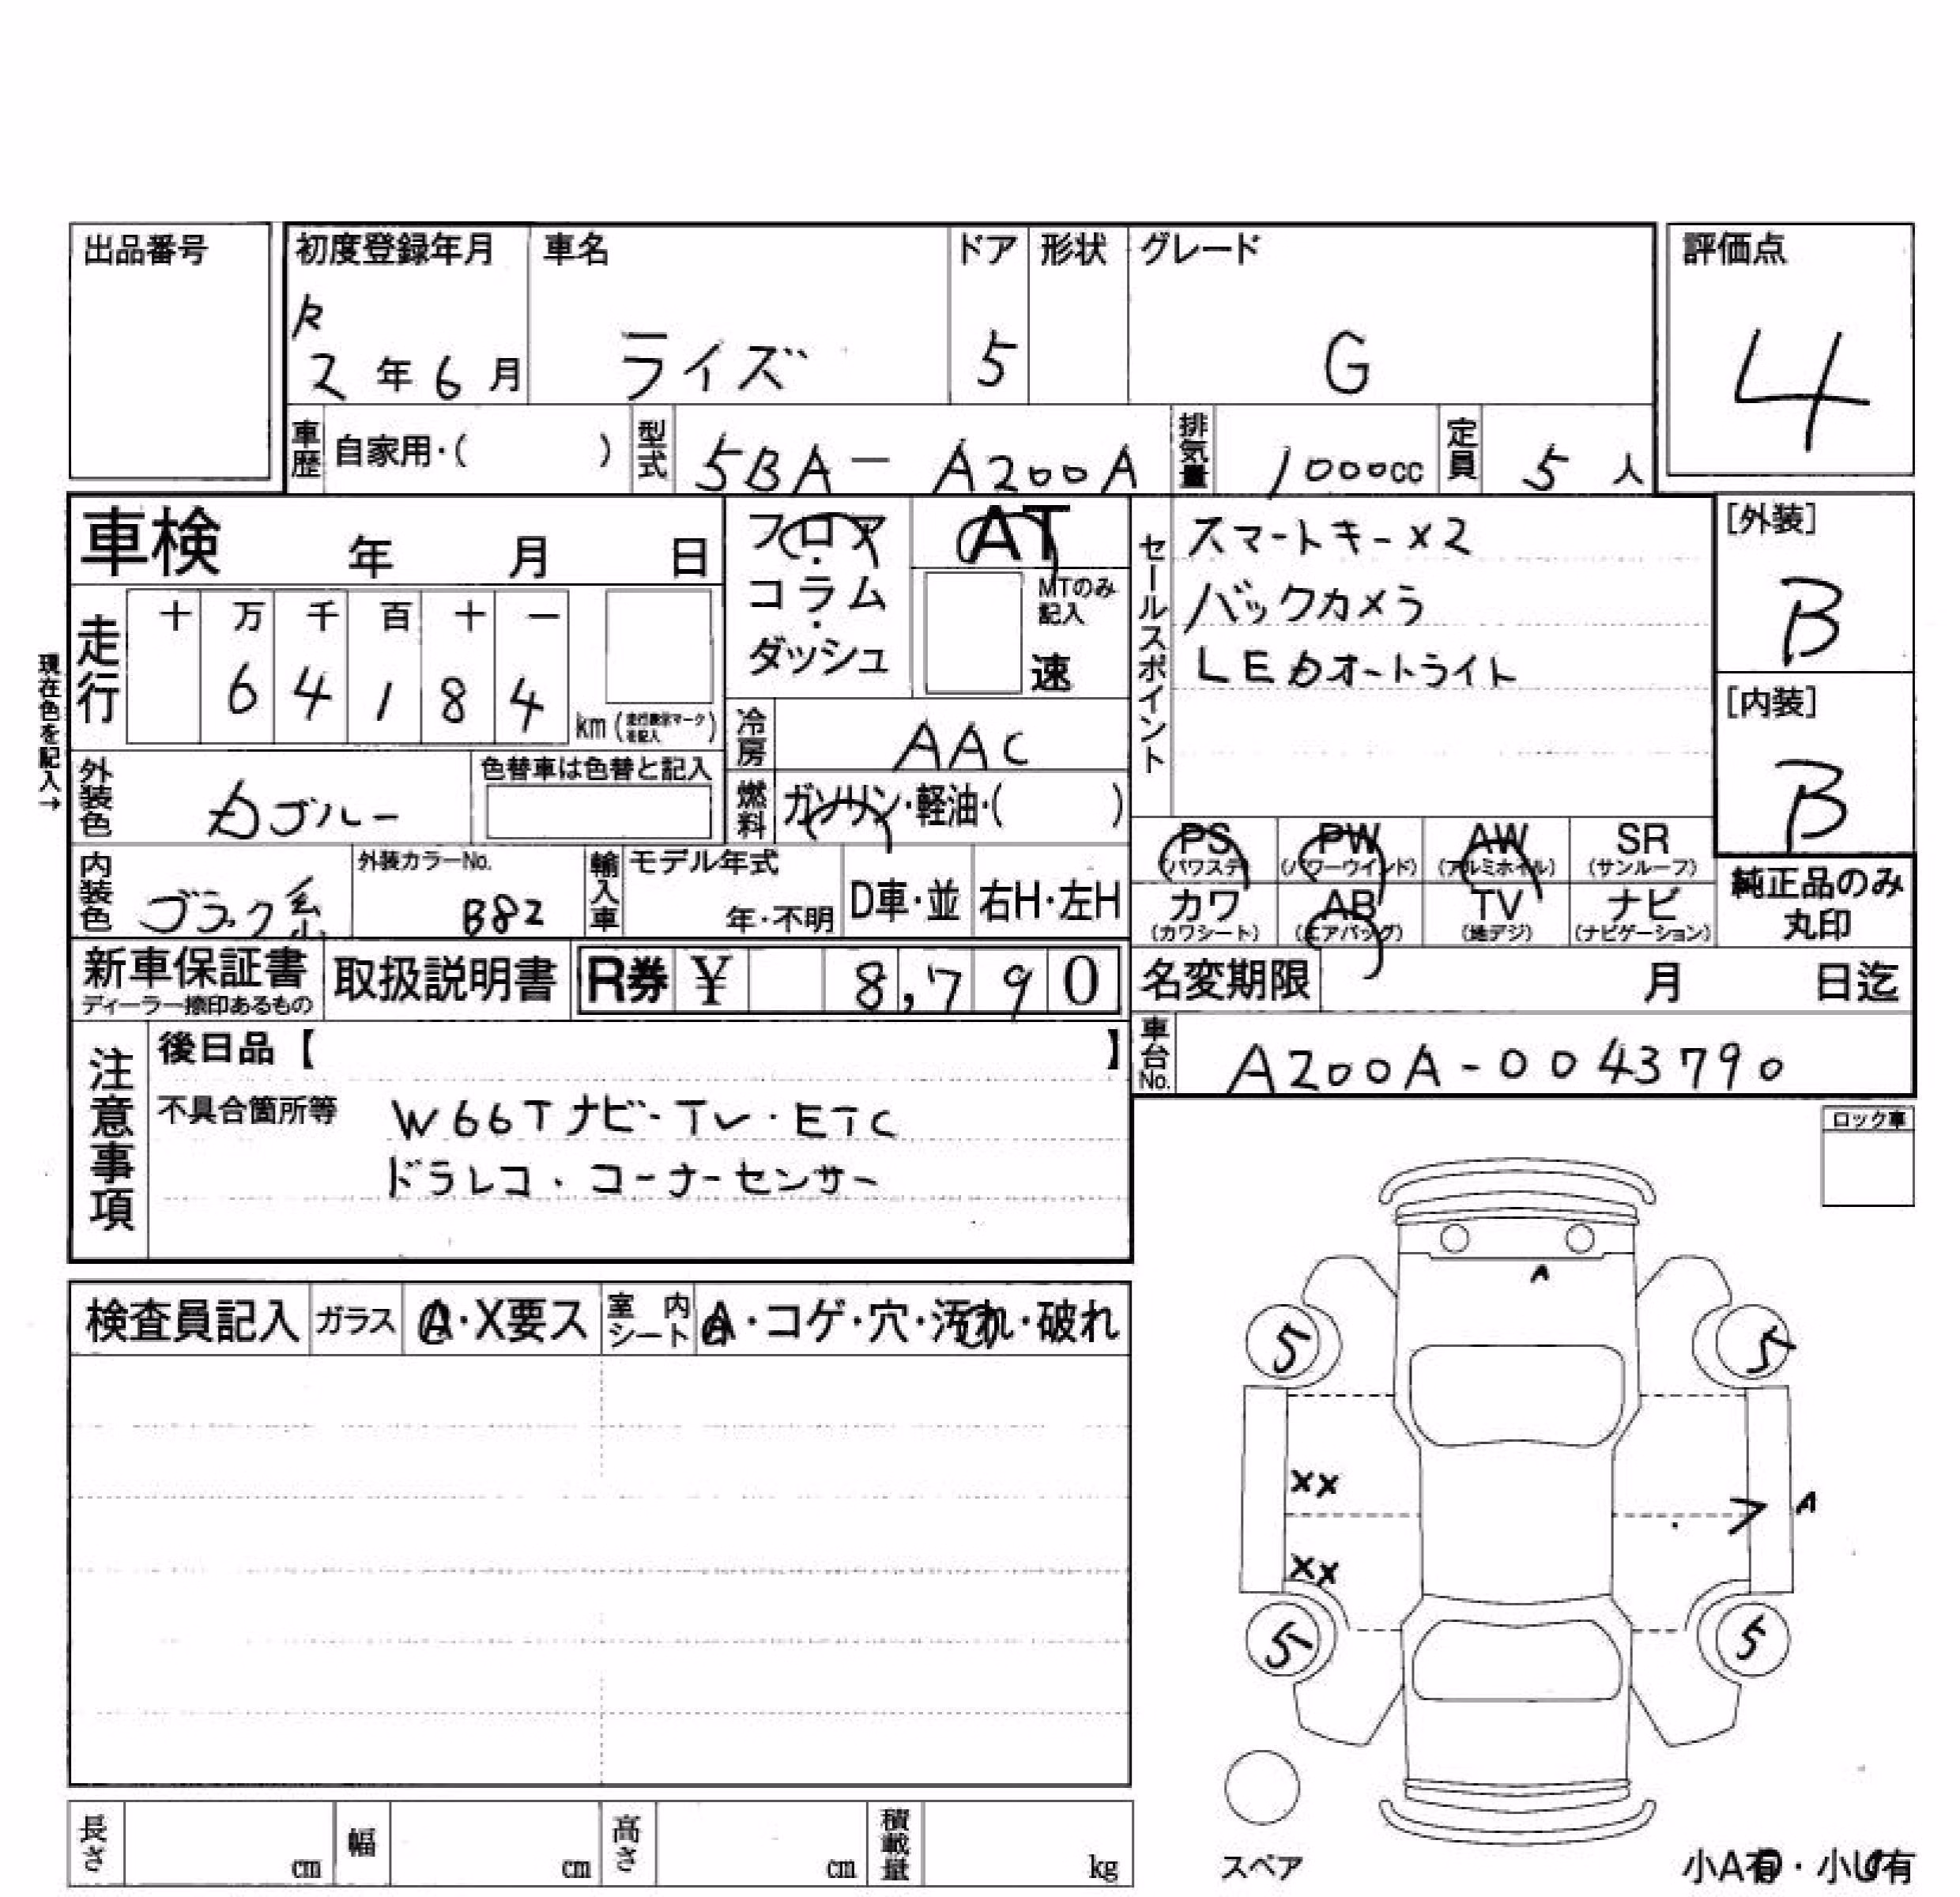 出品番号
初度登録年月 車名 ドア 形状 グレード 評価点
R
2年6月 ライズ 5 G 4
車歴 自家用・( ) 型式 5BA-A200A 排気量 1000cc 定員 5人
車検 年 月 日
フロア・コラム・ダッシュ
AT
MTのみ記入
速
セールスポイント
スマートキー×2
バックカメラ
LEDオートライト
[外装]
B
[内装]
B
現在色を記入→
走行 十 万 千 百 十 一
6 4 1 8 4 km
冷房 AAC
燃料 ガソリン・軽油・( )
外装色 ブルー
色替車は色替と記入
内装色 ブラック系
外装カラーNo.
B82
輸入車 モデル年式
年・不明 D車・並 右H・左H
PS (パワステ) PW (パワーウインド) AW (アルミホイル) SR (サンルーフ)
カワ (カワシート) AB (エアバッグ) TV (地デジ) ナビ (ナビゲーション)
純正品のみ
丸印
新車保証書
ディーラー捺印あるもの
取扱説明書
R券 ¥ 8,790
名変期限 月 日迄
車台No. A200A-0043790
注意事項
後日品【 】
不具合箇所等 W66Tナビ・TV・ETC
ドラレコ・コーナーセンサー
ロック車
検査員記入 ガラス A・X要ス 室内シート A・コゲ・穴・汚れ・破れ
A
5 5
XX
A
XX
5 5
スペア
長さ cm 幅 cm 高さ cm 積載量 kg
小A有・小U有